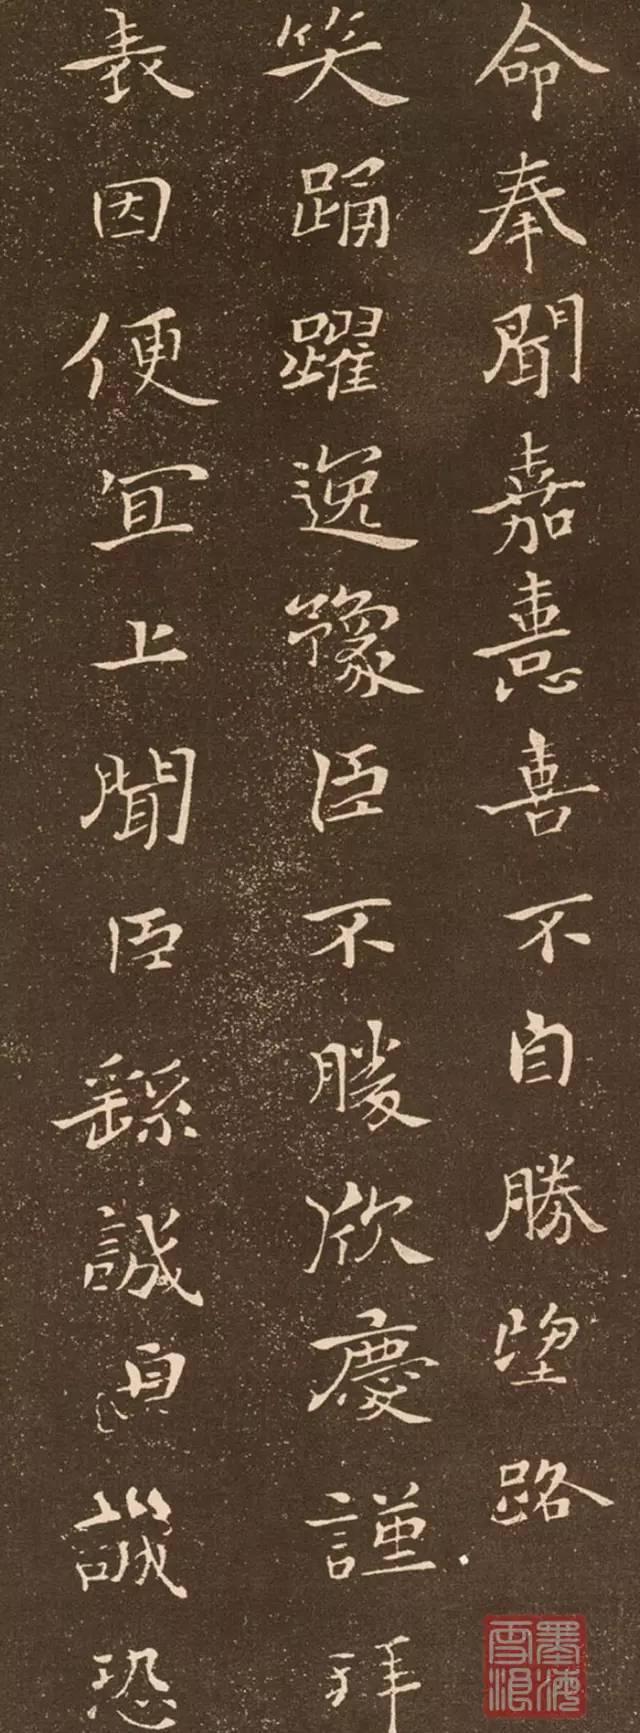 命奉聞嘉憙喜不自勝望路
笑踊躍逸豫臣不勝欣慶謹拜
表因便宜上聞臣繇誠皇誠恐
墨海雪浪